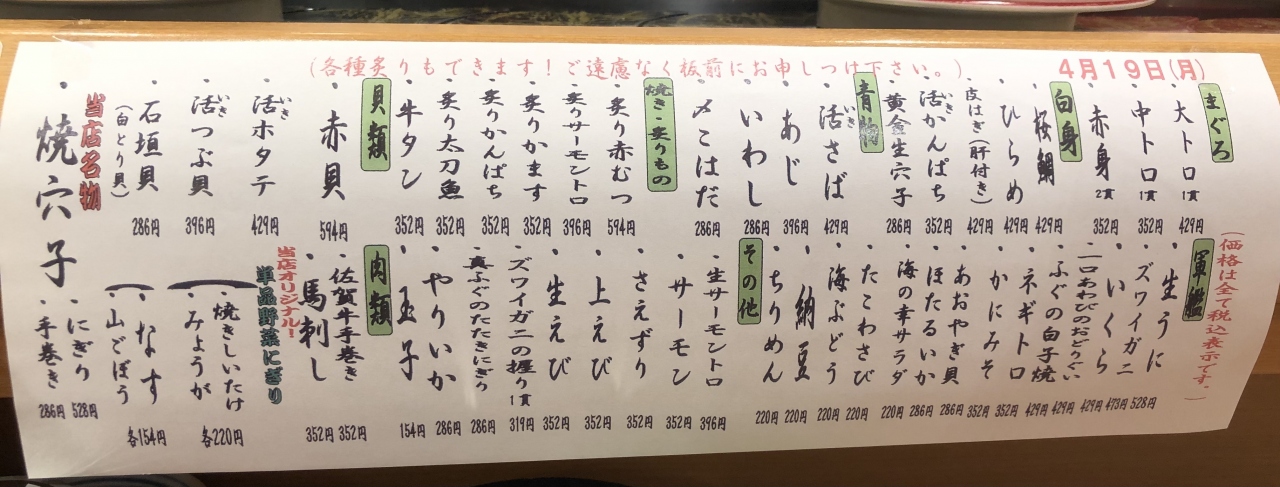 4月19日(月)
(各種炙りもできます!ご遠慮なく板前にお申しつけ下さい。)
(価格は全て税込表示です。)
まぐろ
・大トロ1貫 429円
・中トロ1貫 352円
・赤身2貫 352円
白身
・桜鯛 429円
・ひらめ 429円
・皮はぎ(肝付き) 429円
・活かんぱち 352円
いき
・黄金生穴子 286円
青物
・活さば 429円
いき
・あじ 396円
・いわし 286円
・〆こはだ 286円
焼き・炙りもの
・炙り赤むつ 594円
・炙りサーモントロ 396円
・炙りかます 352円
・炙りかんぱち 352円
・炙り太刀魚 352円
・牛タン 352円
貝類
・赤貝 594円
・活ホタテ 429円
いき
・活つぶ貝 396円
いき
・石垣貝 286円
(白とり貝)
軍艦
・生うに 528円
・ズワイガニ 473円
・いくら 429円
・一口あわびのおどりぐい 429円
・ふぐの白子焼 429円
・ネギトロ 352円
・かにみそ 352円
・あおやぎ貝 286円
・ほたるいか 286円
・海の幸サラダ 220円
・たこわさび 220円
・海ぶどう 220円
・納豆 220円
・ちりめん 220円
その他
・生サーモントロ 396円
・サーモン 352円
・さえずり 352円
・上えび 352円
・生えび 352円
・ズワイガニの握り1貫 319円
・真ふぐのたたきにぎり 286円
・やりいか 286円
・玉子 154円
肉類
・佐賀牛手巻き 352円
・馬刺し 352円
当店オリジナル!
単品野菜にぎり
・焼きしいたけ
・みょうが
各220円
・なす
・山ごぼう
各154円
当店名物
・焼穴子
・にぎり 528円
・手巻き 286円